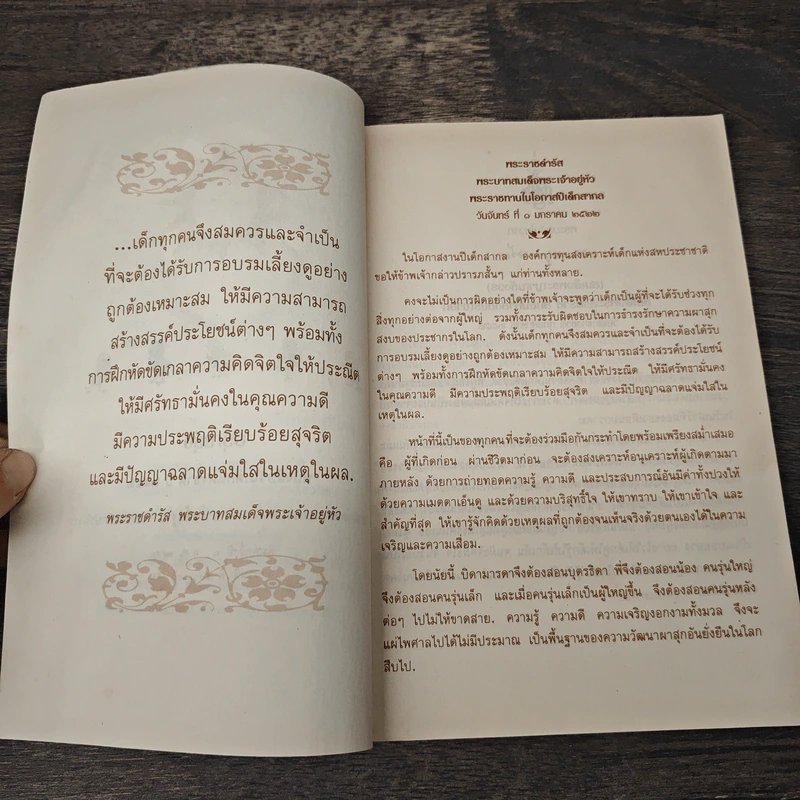 ...เด็กทุกคนจึงสมควรและจำเป็น
ที่จะต้องได้รับการอบรมเลี้ยงดูอย่าง
ถูกต้องเหมาะสม ให้มีความสามารถ
สร้างสรรค์ประโยชน์ต่างๆ พร้อมทั้ง
การฝึกหัดขัดเกลาความคิดจิตใจให้ประณีต
ให้มีศรัทธามั่นคงในคุณความดี
มีความประพฤติเรียบร้อยสุจริต
และมีปัญญาฉลาดแจ่มใสในเหตุในผล.
พระราชดำรัส พระบาทสมเด็จพระเจ้าอยู่หัว
พระราชดำรัส
พระบาทสมเด็จพระเจ้าอยู่หัว
พระราชทานในโอกาสปีเด็กสากล
วันจันทร์ ที่ ๑ มกราคม ๒๕๒๒
ในโอกาสงานปีเด็กสากล องค์การทุนสงเคราะห์เด็กแห่งสหประชาชาติ
ขอให้ข้าพเจ้ากล่าวปรารภสั้นๆ แก่ท่านทั้งหลาย.
คงจะไม่เป็นการผิดอย่างใดที่ข้าพเจ้าจะพูดว่าเด็กเป็นผู้ที่จะได้รับช่วงทุก
สิ่งทุกอย่างต่อจากผู้ใหญ่ รวมทั้งภาระรับผิดชอบในการธำรงรักษาความผาสุก
สงบของประชากรในโลก. ดังนั้นเด็กทุกคนจึงสมควรและจำเป็นที่จะต้องได้รับ
การอบรมเลี้ยงดูอย่างถูกต้องเหมาะสม ให้มีความสามารถสร้างสรรค์ประโยชน์
ต่างๆ พร้อมทั้งการฝึกหัดขัดเกลาความคิดจิตใจให้ประณีต ให้มีศรัทธามั่นคง
ในคุณความดี มีความประพฤติเรียบร้อยสุจริต และมีปัญญาฉลาดแจ่มใสใน
เหตุในผล.
หน้าที่นี้เป็นของทุกคนที่จะต้องร่วมมือกันกระทำโดยพร้อมเพรียงสม่ำเสมอ
คือ ผู้ที่เกิดก่อน ผ่านชีวิตมาก่อน จะต้องสงเคราะห์อนุเคราะห์ผู้เกิดตามมา
ภายหลัง ด้วยการถ่ายทอดความรู้ ความดี และประสบการณ์อันมีค่าทั้งปวงให้
ด้วยความเมตตาเอ็นดู และด้วยความบริสุทธิ์ใจ ให้เขาทราบ ให้เขาเข้าใจ และ
สำคัญที่สุด ให้เขารู้จักคิดด้วยเหตุผลที่ถูกต้องจนเห็นจริงด้วยตนเองได้ในความ
เจริญและความเสื่อม.
โดยนัยนี้ บิดามารดาจึงต้องสอนบุตรธิดา พี่จึงต้องสอนน้อง คนรุ่นใหญ่
จึงต้องสอนคนรุ่นเล็ก และเมื่อคนรุ่นเล็กเป็นผู้ใหญ่ขึ้น จึงต้องสอนคนรุ่นหลัง
ต่อๆ ไปไม่ให้ขาดสาย. ความรู้ ความดี ความเจริญงอกงามทั้งมวล จึงจะ
แผ่ไพศาลไปได้ไม่มีประมาณ เป็นพื้นฐานของความวัฒนาผาสุกอันยั่งยืนในโลก
สืบไป.